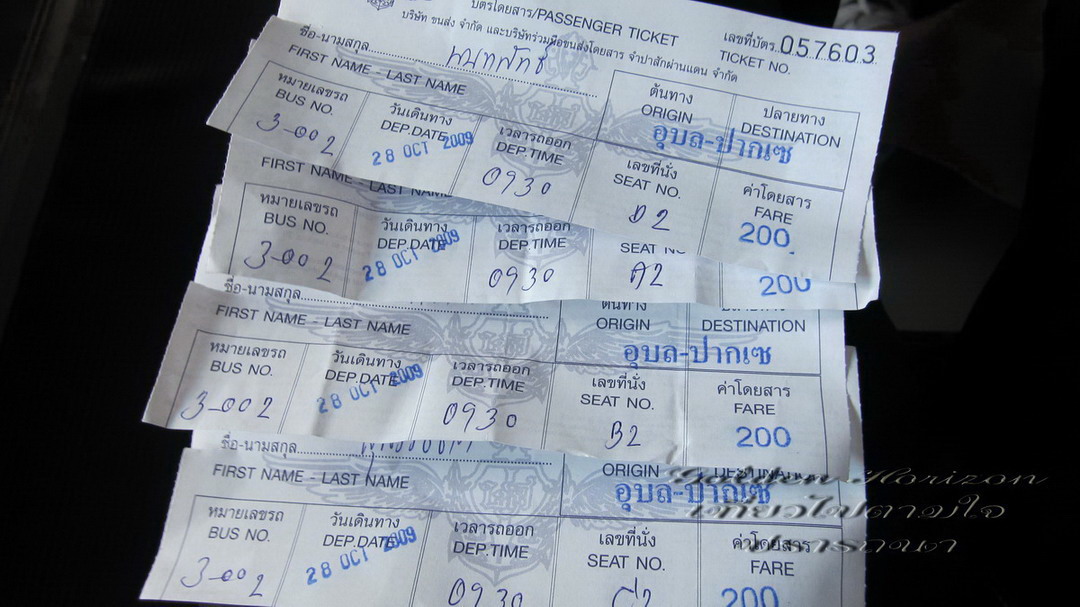 บัตรโดยสาร/PASSENGER TICKET
เลขที่บัตร 057603
TICKET NO.
บริษัท ขนส่ง จำกัด และบริษัทร่วมมือขนส่งโดยสาร จำปาสักผ่านแดน จำกัด
ชื่อ-นามสกุล
FIRST NAME - LAST NAME
ต้นทาง ปลายทาง
ORIGIN DESTINATION
อุบล-ปากเซ
หมายเลขรถ วันเดินทาง เวลารถออก เลขที่นั่ง ค่าโดยสาร
BUS NO. DEP.DATE DEP.TIME SEAT NO. FARE
3-002 28 OCT 2009 0930 D2 200
FIRST NAME - LAST NAME
หมายเลขรถ วันเดินทาง เวลารถออก
BUS NO. DEP.DATE DEP.TIME SEAT NO.
3-002 28 OCT 2009 0930 A2 200
ชื่อ-นามสกุล
FIRST NAME - LAST NAME
ต้นทาง ปลายทาง
ORIGIN DESTINATION
อุบล-ปากเซ
หมายเลขรถ วันเดินทาง เวลารถออก เลขที่นั่ง ค่าโดยสาร
BUS NO. DEP.DATE DEP.TIME SEAT NO. FARE
3-002 28 OCT 2009 0930 B2 200
ชื่อ-นามสกุล
FIRST NAME - LAST NAME
ORIGIN DESTINATION
อุบล-ปากเซ
หมายเลขรถ วันเดินทาง เวลารถออก เลขที่นั่ง ค่าโดยสาร
BUS NO. DEP.DATE DEP.TIME SEAT NO. FARE
3-002 28 OCT 2009 0930 C2 200
Horizon
เที่ยวไปตามใจ
ปรารถนา